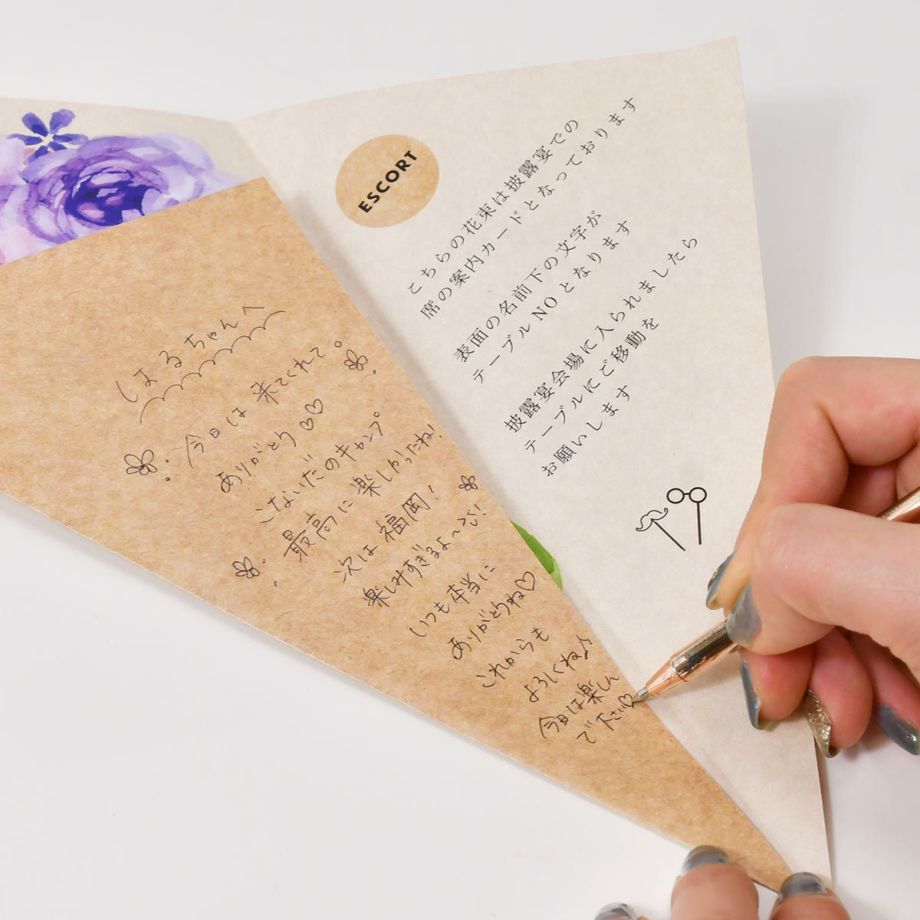 はるちゃんへ
今日は来てくれて。
ありがとう♡♡
こないだのキャンプ
最高に楽しかったね!
次は福岡!
楽しみすぎるよ〜ぅ!
いつも本当に
ありがとうね♡
これからも
よろしくね♪
今日は楽しん
で下さい♡
ESCORT
こちらの花束は披露宴での
席の案内カードとなっております
表面の名前下の文字が
テーブル NO となります
披露宴会場に入られましたら
テーブルにご移動を
お願いします